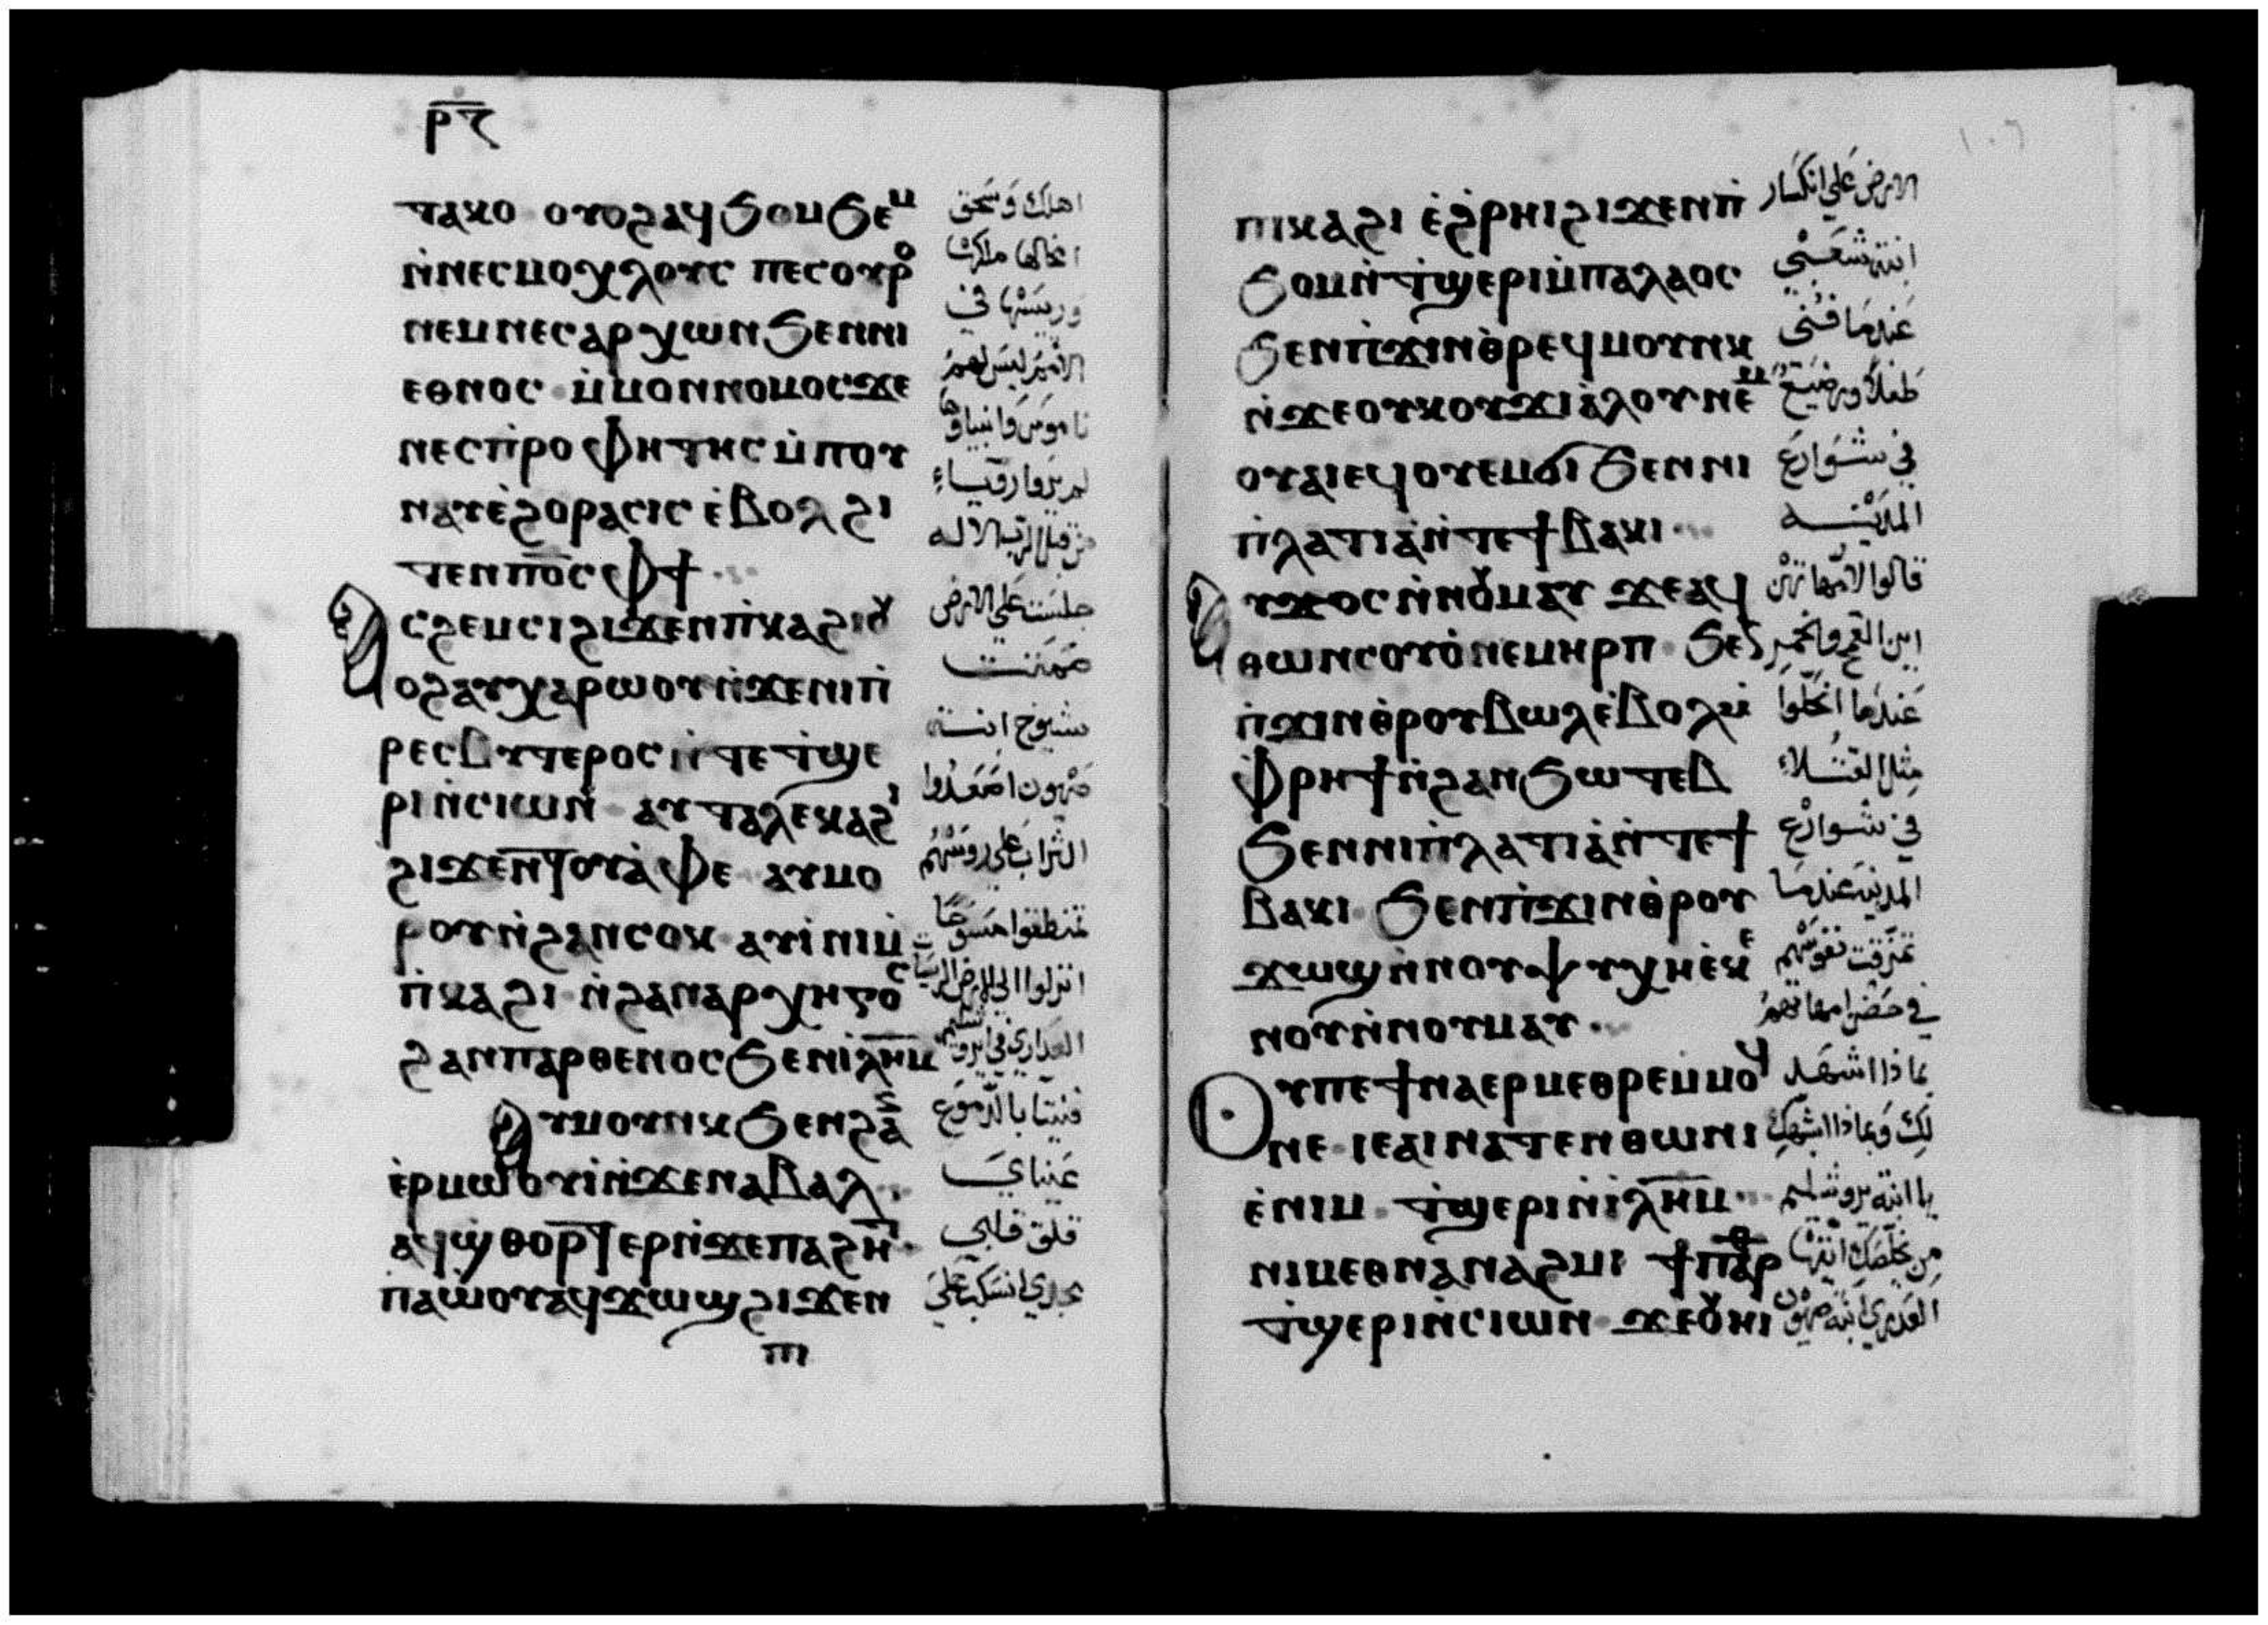 ⲣ̅ⲋ̅
ⲧⲁⲕⲟ ⲟⲩⲟϩⲁϥϧⲟⲙϧⲉⲙ
ⲛ̀ⲛⲉⲥⲙⲟⲭⲗⲟⲩⲥ ⲡⲉⲥⲟⲩⲣⲟ
ⲛⲉⲙⲛⲉⲥⲁⲣⲭⲱⲛϧⲉⲛⲛⲓ
ⲉⲑⲛⲟⲥ ⲙ̀ⲙⲟⲛⲛⲟⲙⲟⲥϫⲉ
ⲛⲉⲥⲡ̀ⲣⲟⲫⲏⲧⲏⲥⲙ̀ⲡⲟⲩ
ⲛⲁⲩⲉ̀ϩⲟⲣⲁⲥⲓⲥ ⲉ̀ⲃⲟⲗϩⲓ
ⲧⲉⲛⲡⲟ̅ⲥ̅ⲫϯ
ⲥϩⲉⲙⲥⲓϩⲓϫⲉⲛⲡ̀ⲕⲁϩⲓⲟⲩ
ⲟϩⲁⲩⲭⲁⲣⲱⲟⲩⲛ̀ϫⲉⲛⲓⲡ̀
ⲣⲉⲥⲃⲩⲧⲉⲣⲟⲥⲛ̀ⲧⲉⲧ̀ϣⲉ
ⲣⲓⲛ̀ⲥⲓⲱⲛ ⲁⲩⲧⲁⲗⲉⲕⲁϩⲓ
ϩⲓϫⲉⲛⲧⲟⲩⲁ̀ⲫⲉ ⲁⲩⲙⲟ
ⲣⲟⲩⲛ̀ϩⲁⲛⲥⲟⲕ ⲁⲩⲓ̀ⲛⲓⲙ̀
ⲡ̀ⲕⲁϩⲓ ⲛ̀ϩⲁⲛⲁⲣⲭⲏⲅⲟⲥ
ϩⲁⲛⲡⲁⲣⲑⲉⲛⲟⲥϧⲉⲛⲓ̀ⲗ̅ⲏ̅ⲙ̅
ⲁⲩⲙⲟⲩⲛⲕϧⲉⲛϩⲁⲛ
ⲉⲣⲙⲱⲟⲩⲓ̀ⲛ̀ϫⲉⲛⲁⲃⲁⲗ
ⲁϥϣ̀ⲑⲟⲣⲧⲉⲣⲛ̀ϫⲉⲡⲁϩⲏⲧ
ⲡⲁⲱ̀ⲟⲩⲁϥϫⲱϣϩⲓϫⲉⲛ
ⲡⲓ
اهلك وسحق
امخالها ملكها
وريسها في
الامم ليس لهم
ناموس وانبياوها
لم يروا رؤياء
من قبل الرب الاله
جلست على الارض
صمتت
شيوخ ابنة
صهيون اصعدوا
التراب على روسهم
تمنطقوا مسوحًا
انزلوا الى الارض الريسات
العداري في يروشليم
فنيتا بالدموع
عيناي
قلق قلبي
مجدي انسكب على
ⲡⲓⲕⲁϩⲓ ⲉ̀ϩⲣⲏⲓϩⲓϫⲉⲛⲡ̀
ϧⲟⲙⲛ̀ⲧ̀ϣⲉⲣⲓⲙ̀ⲡⲁⲗⲁⲟⲥ
ϧⲉⲛⲡ̀ϫⲓⲛⲑ̀ⲣⲉϥⲙⲟⲩⲛⲕ
ⲛ̀ϫⲉⲟⲩⲕⲟⲩϫⲓⲁ̀ⲗⲟⲩⲛⲉⲙ
ⲟⲩⲁⲓⲉϥⲟⲩⲉⲙϭⲓ ϧⲉⲛⲛⲓ
ⲡ̀ⲗⲁⲧⲓⲁ̀ⲛ̀ⲧⲉϯⲃⲁⲕⲓ
ⲩϫⲟⲥⲛ̀ⲛⲟⲩⲙⲁⲩ ϫⲉⲁϥ
ⲑⲱⲛⲥⲟⲩⲟ̀ⲛⲉⲙⲏⲣⲡ ϧⲉⲛ
ⲡ̀ϫⲓⲛⲑ̀ⲣⲟⲩⲃⲱⲗⲉ̀ⲃⲟⲗⲙ̀
ⲫⲣⲏϯⲛ̀ϩⲁⲛϧⲱⲧⲉⲃ
ϧⲉⲛⲛⲓⲡ̀ⲗⲁⲧⲓⲁ̀ⲛ̀ⲧⲉϯ
ⲃⲁⲕⲓ ϧⲉⲛⲡ̀ϫⲓⲛⲑ̀ⲣⲟⲩ
ϫⲱϣⲛ̀ⲛⲟⲩⲯⲩⲭⲏⲉ̀ⲕⲉ
ⲛⲟⲩⲛ̀ⲛⲟⲩⲙⲁⲩ
ⲟⲩⲡⲉϯⲛⲁⲉⲣⲙⲉⲑⲣⲉⲙ̀ⲙⲟϥ
ⲛⲉ ⲓⲉⲁⲓⲛⲁⲧⲉⲛⲑⲱⲛⲓ
ⲉ̀ⲛⲓⲙ ⲧ̀ϣⲉⲣⲓⲛ̀ⲓ̀ⲗ̅ⲏ̅ⲙ̅
ⲛⲓⲙⲉⲑⲛⲁⲛⲁϩⲙⲓ ϯⲡⲁⲣⲑ
ⲧ̀ϣⲉⲣⲓⲛ̀ⲥⲓⲱⲛ ϫⲉⲟⲩⲏⲓ
الارض على انكسار
ابنة شعبي
عندما فنى
طفلا ورضيع
في شوارع
المدينه
قالوا لامهاتهن
اين القمح والخمر
عندما انحلوا
مثل القتلاء
في شوارع
المدينه عندما
تمزقت نفوسهم
في حضن امهاتهم
بماذا اشهد
لك وبماذا اشبهك
يا ابنة يروشليم
من يخلصك ايتها
العذري ابنة صهيون